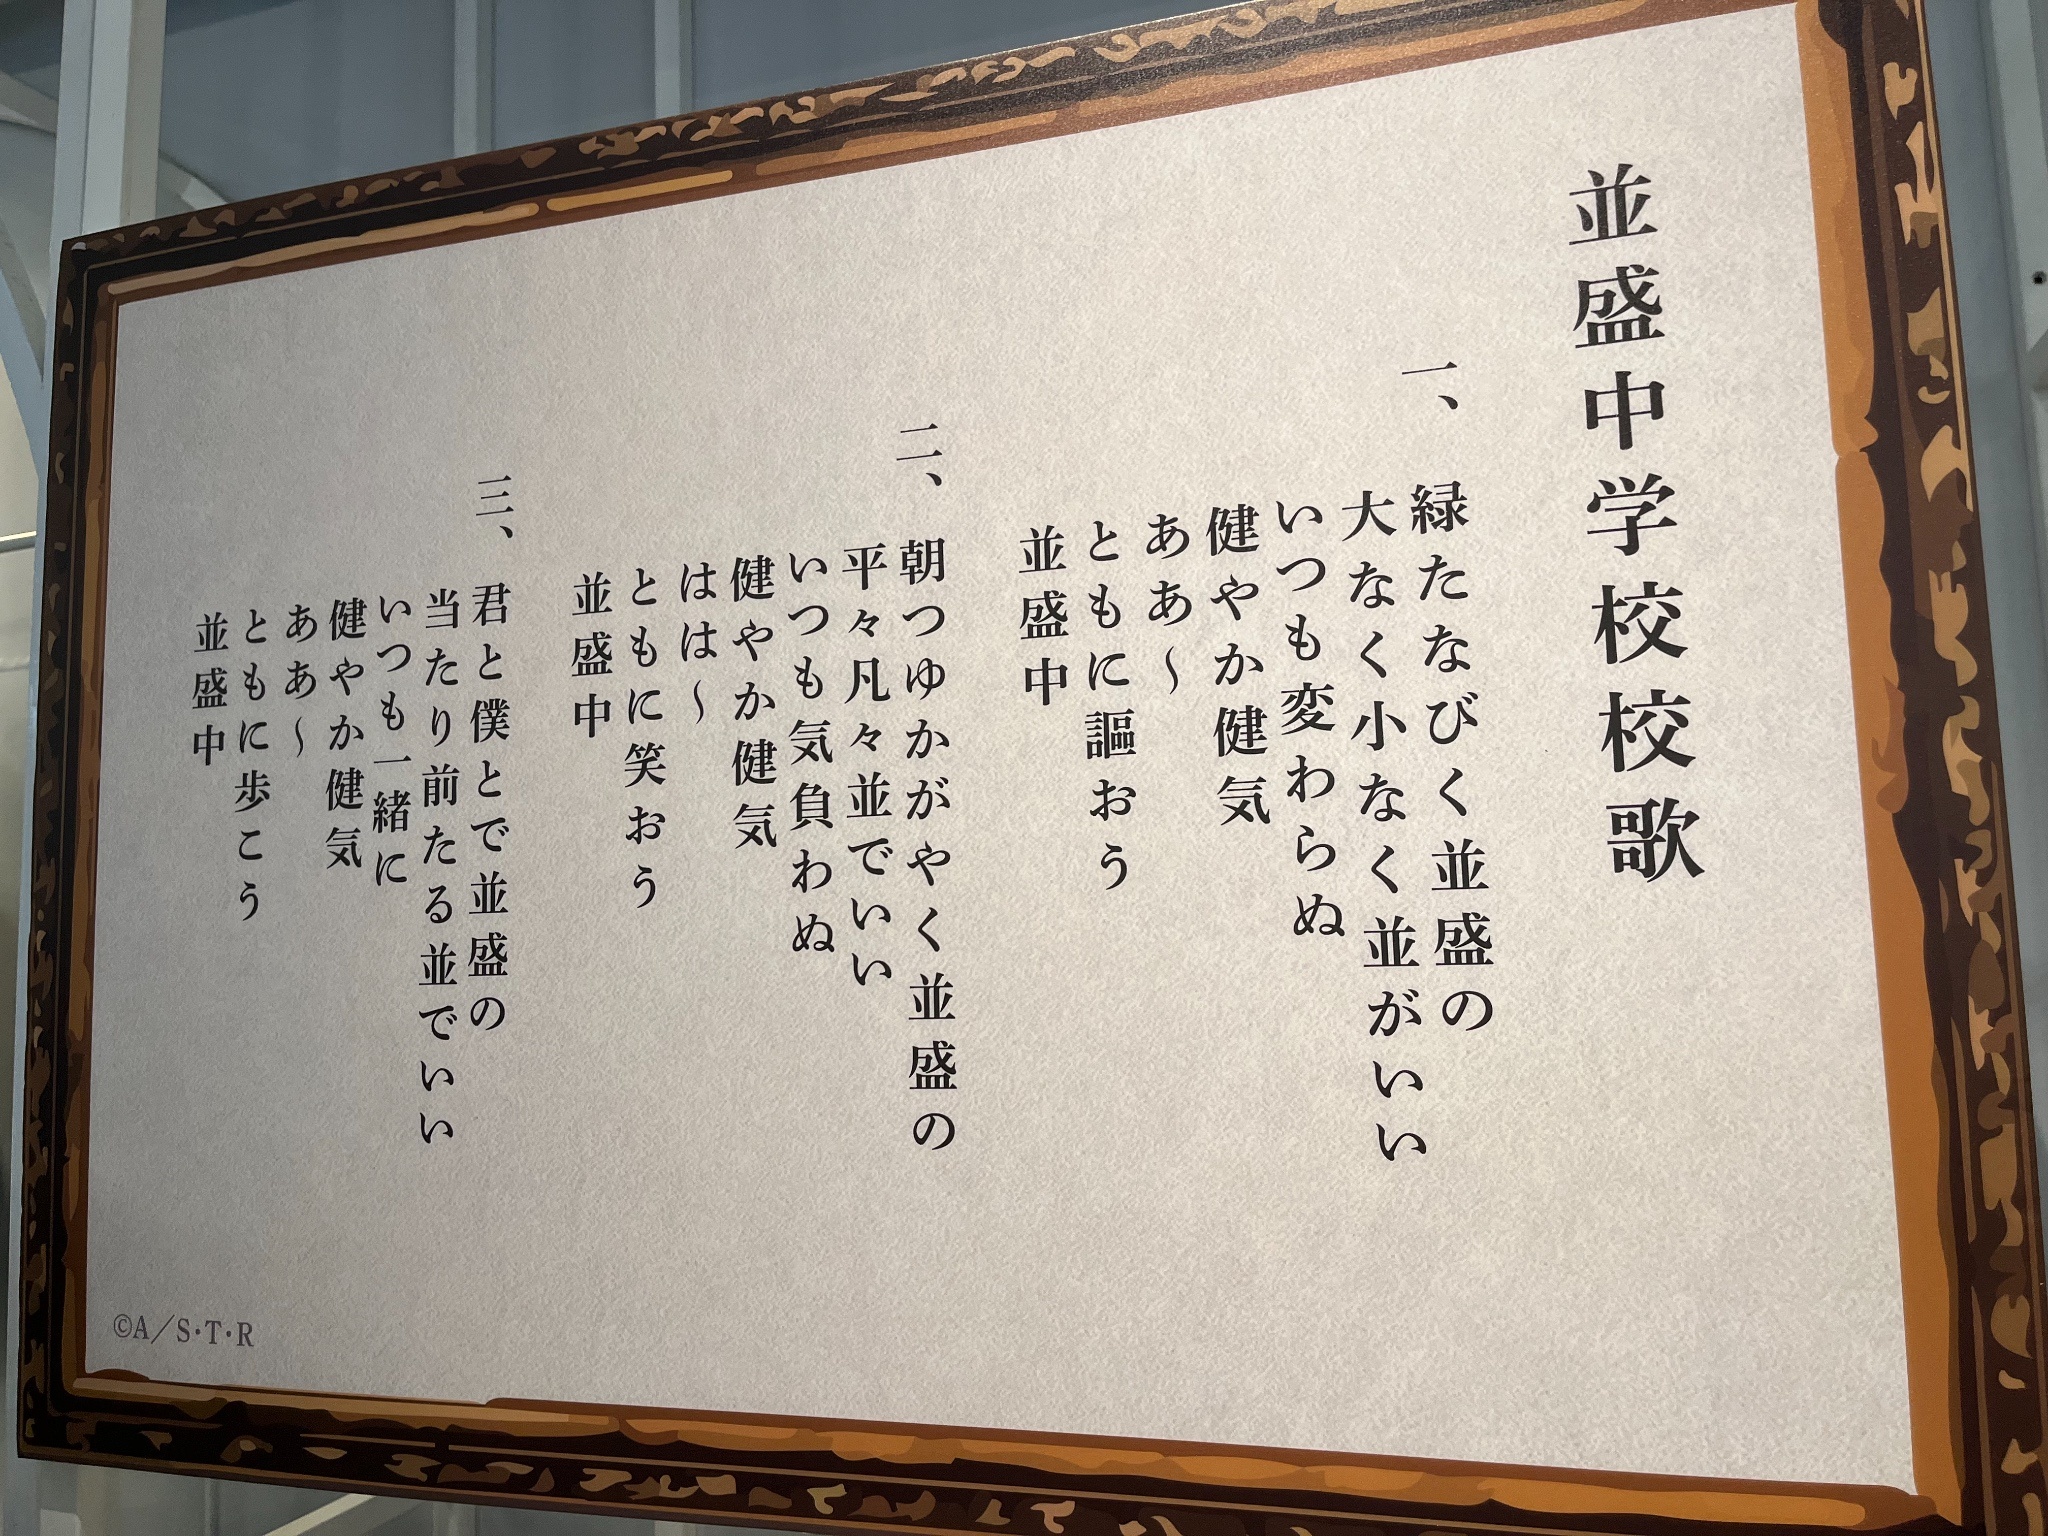 並盛中学校校歌
一、 緑たなびく並盛の
大なく小なく並がいい
いつも変わらぬ
健やか健気
ああ～
ともに謳おう
並盛中
二、 朝つゆかがやく並盛の
平々凡々並でいい
いつも気負わぬ
健やか健気
はは～
ともに笑おう
並盛中
三、 君と僕とで並盛の
当たり前たる並でいい
いつも一緒に
健やか健気
ああ～
ともに歩こう
並盛中
©A／S・T・R